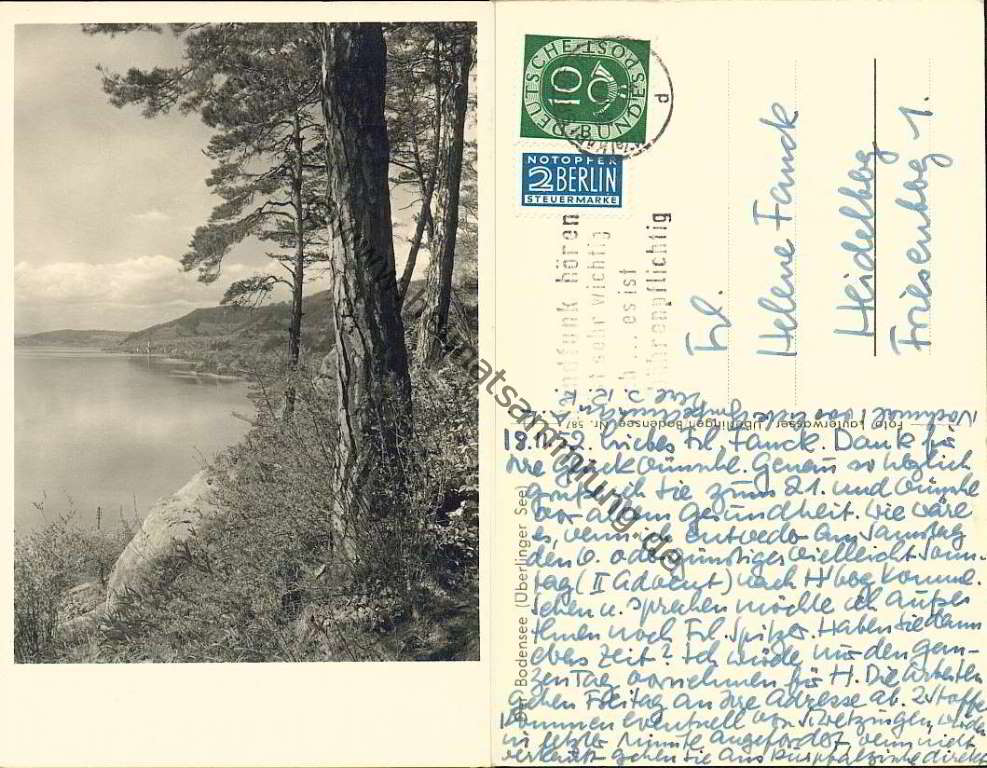 DEUTSCHE BUNDESPOST
10
NOTOPFER
2 BERLIN
STEUERMARKE
hören
sehr wichtig
... es ist
pflichtig
Frl.
Helene Fanck
Heidelbg
Friesenbg 1.
Foto Lauterwasser, Überlingen/Bodensee, Nr. 58
Bodensee (Überlinger See)
.52. Liebes Frl. Fanck. Dank für
Ihre Glückwünsche. Genau so herzlich
grüße ich Sie zum 21. und wünsche
vor allem Gesundheit. Wie wäre
es, wenn ich entweder am Samstag
den 6. oder günstiger vielleicht Sonn-
tag (II Advent) nach H'bg komme.
Sehen u. sprechen möchte ich außer
Ihnen noch Frl. Spitzer. Haben Sie dann
etwas Zeit? Ich würde mir den gan-
zen Tag vornehmen für H. Die Arbeiten
gehen Freitag an Ihre Adresse ab. 2 Stoffe
kommen eventuell von Schwetzingen, wurden
in letzter Minute angefordert, wenn nicht
verkauft gehen sie aus direkt